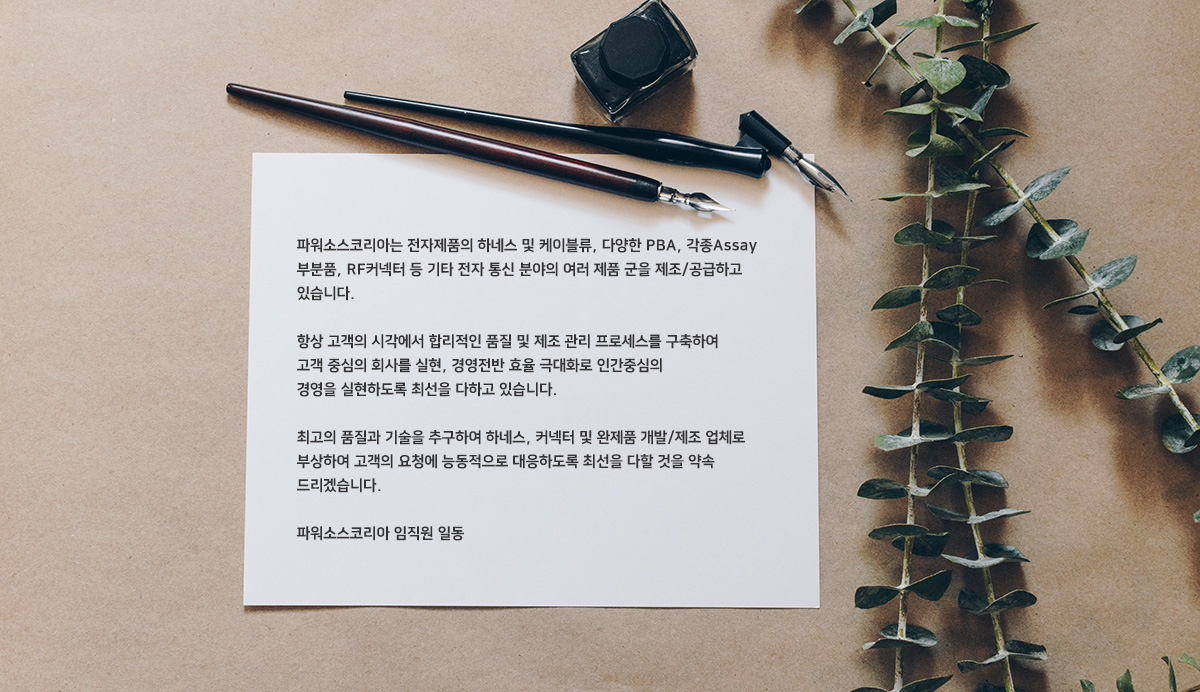 파워소스코리아는 전자제품의 하네스 및 케이블류, 다양한 PBA, 각종Assay
부분품, RF커넥터 등 기타 전자 통신 분야의 여러 제품 군을 제조/공급하고
있습니다.
항상 고객의 시각에서 합리적인 품질 및 제조 관리 프로세스를 구축하여
고객 중심의 회사를 실현, 경영전반 효율 극대화로 인간중심의
경영을 실현하도록 최선을 다하고 있습니다.
최고의 품질과 기술을 추구하여 하네스, 커넥터 및 완제품 개발/제조 업체로
부상하여 고객의 요청에 능동적으로 대응하도록 최선을 다할 것을 약속
드리겠습니다.
파워소스코리아 임직원 일동